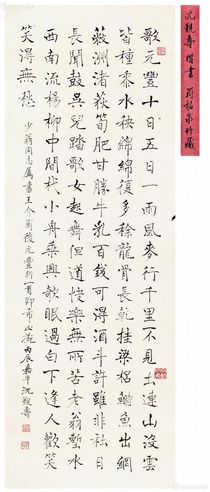 沈觀壽 楷書 珍藏
歌元豐十日五日一雨風麥行千里不見土連山沒雲
皆種黍水秧綿綿復多稌龍骨長乾挂梁梠鰣魚出網
蔽洲渚荻筍肥甘勝牛乳百錢可得酒斗許雖非社日
長聞鼓吳兒踏歌女起舞但道快樂無所苦老翁塹水
西南流楊柳中間杙小舟乘興欹眠過白下逢人歡笑
笑得無愁
少翁同志屬書王介甫後元豐行一首即希 丙辰嘉平沈觀壽